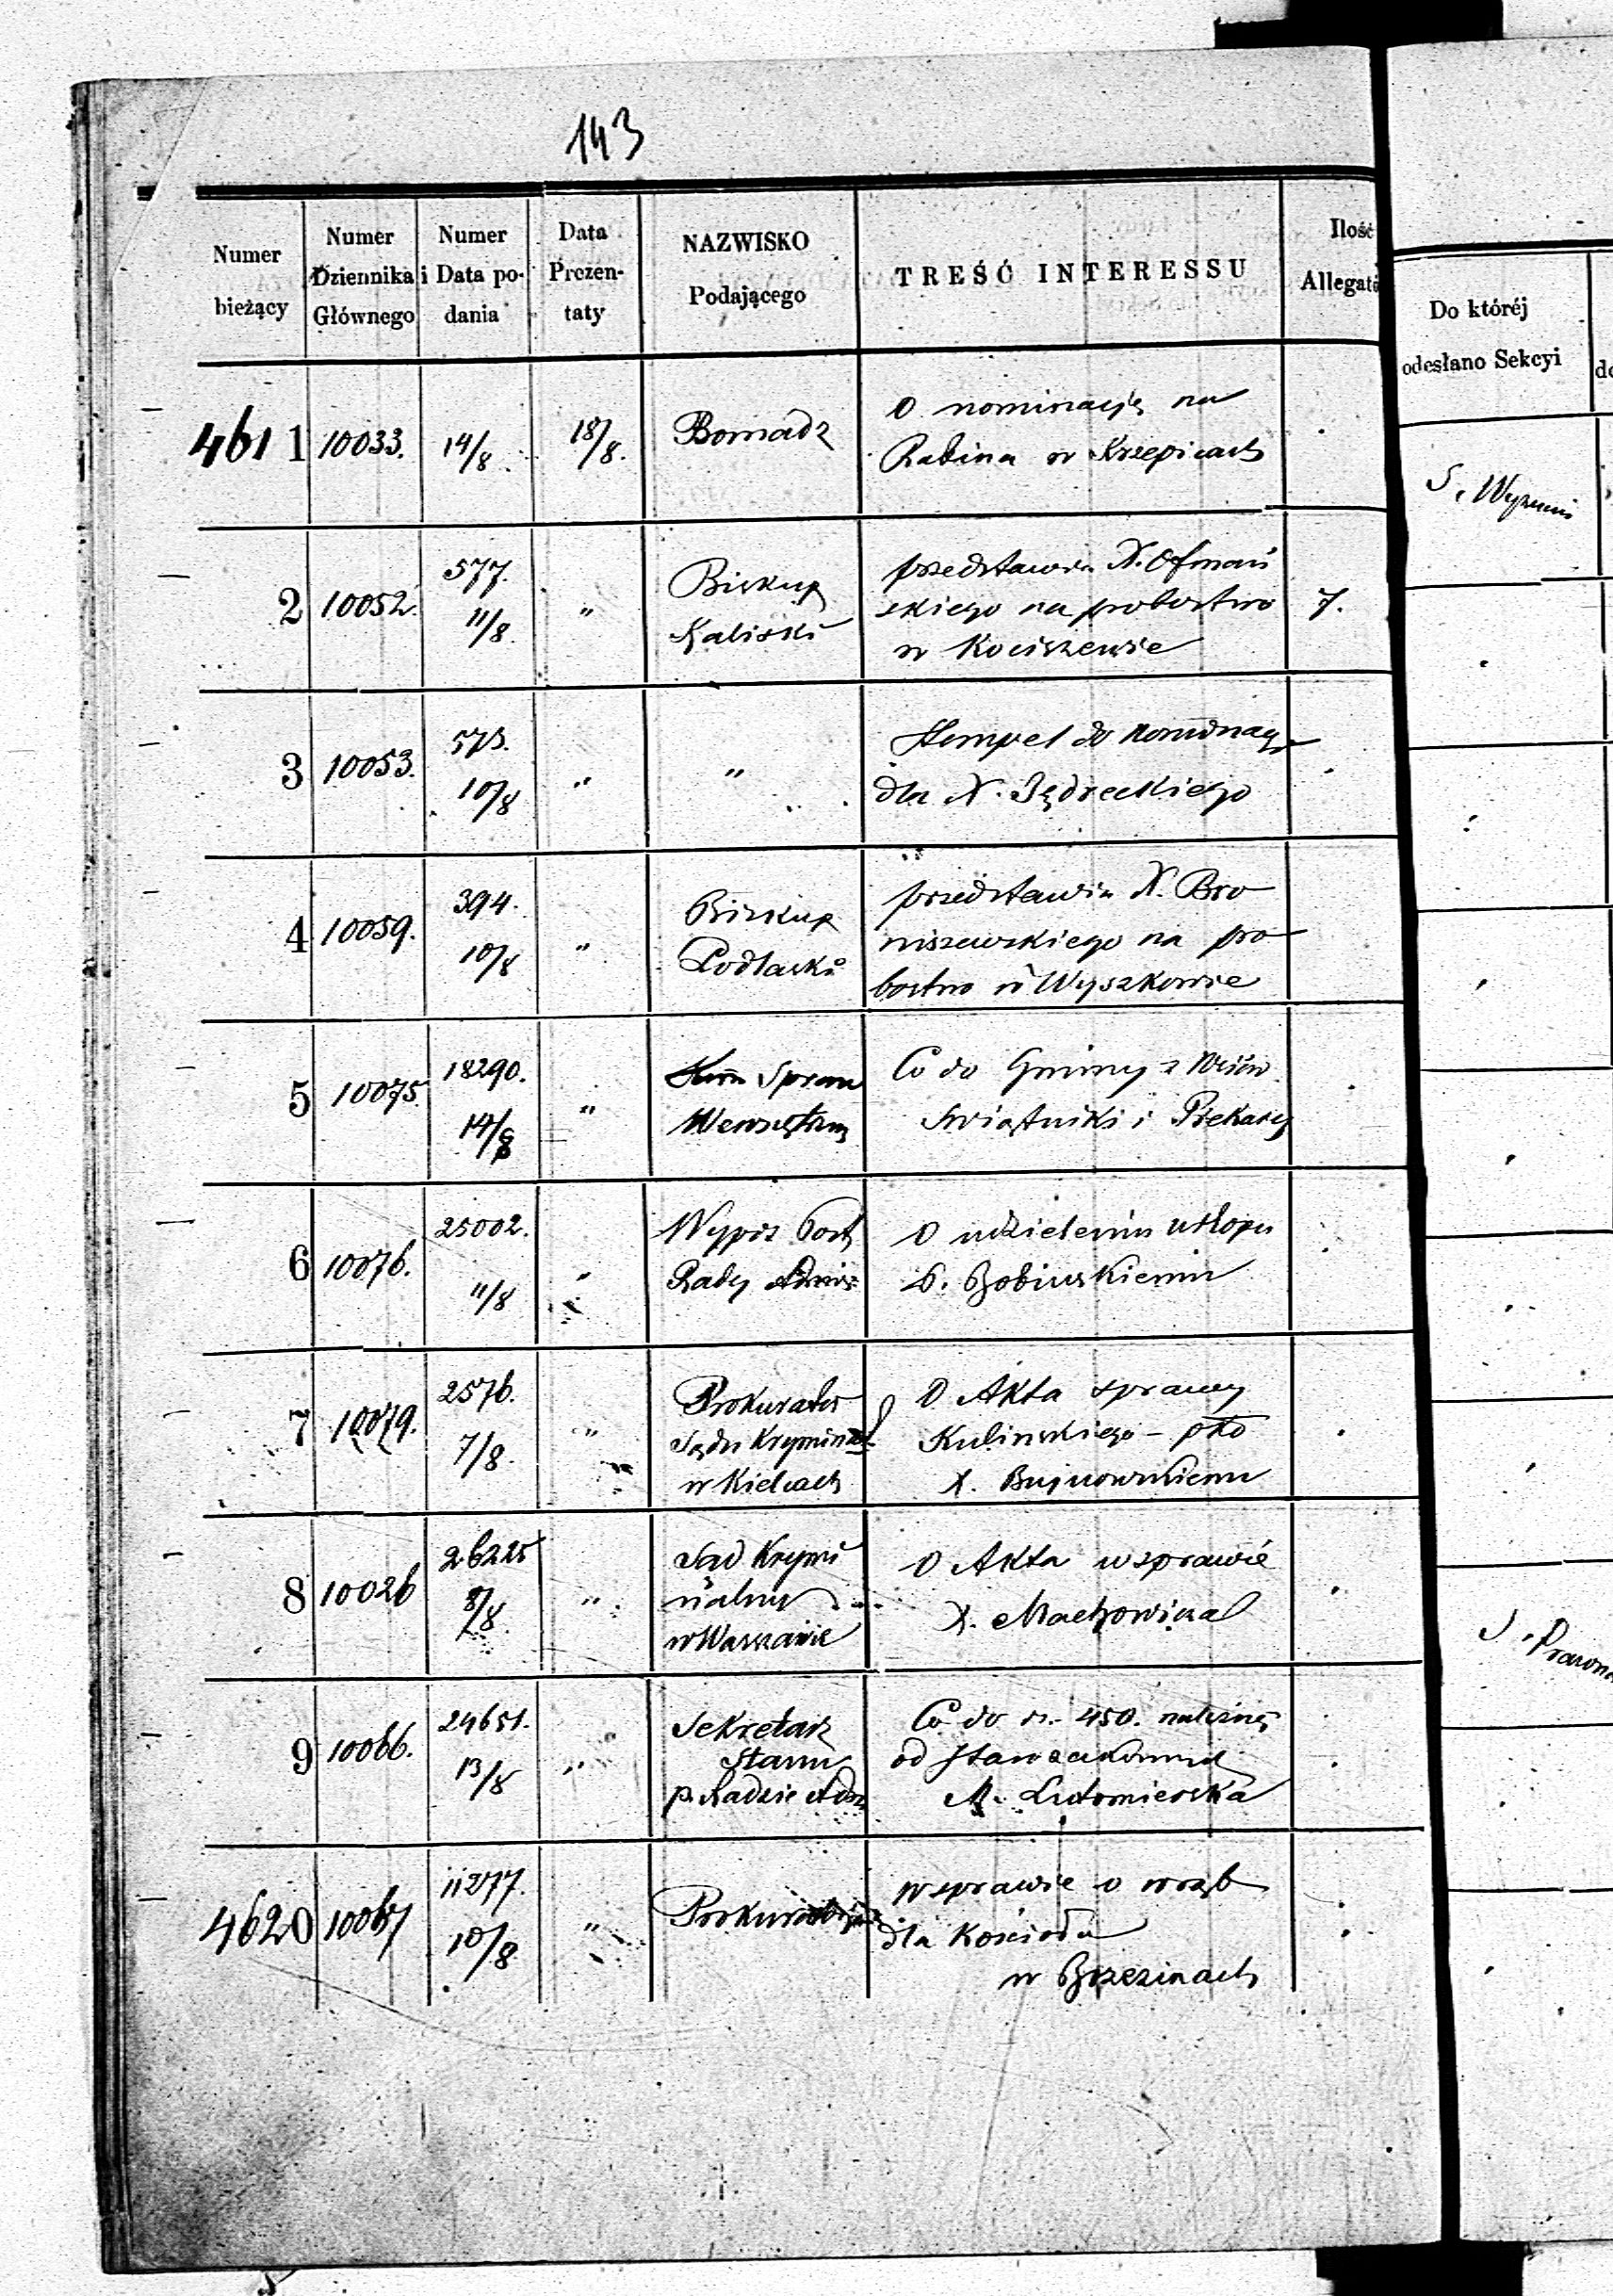 143
Numer bieżący
Numer Dziennika Głównego
Numer i Data podania
Data Prezentaty
NAZWISKO Podającego
TREŚĆ INTERESSU
Ilość
Do któréj odesłano Sekcyi
4611 10033. 14/8 18/8. Bomadz
O nominacją na
Rabina w Krzepicach
S. Wyznań
2 10052. 577. 11/8. "
Biskup
Kaliski
przedstawia X. Ofmań
skiego na probostwo
w Kociszewie
7.
3 10053. 573. 10/8 " "
Stempel do nominacyi
dla X. Jędreckiego
4 10059. 394. 10/8 "
Biskup
Podlaski
przedstawia X. Bro
niszewskiego na pro
bostwo w Wyszkowie
5 10075. 18290. 14/8 "
Kom Spraw
Wewnętrzn
Co do Gminy z Wsiów
Swiątniki i Piekary
6 10076. 25002. 11/8 "
Wypis Post
Rady Admin
O udzieleniu urlopu
P. Bobińskiemu
7 10079. 2576. 7/8. "
Prokurator
Sądu Kryminal
w Kielcach
O Akta sprawy
Kulinskiego – pko
X. Bujnowskiemu
8 10026 26225 8/8 "
Sąd Krymi
nalny
w Warszawie
O Akta w sprawie
X.
9 10066. 24651. 13/8 "
Sekretarz
Stanu
p. Radzie Adm
Co do rs. 450. należnej
od
M. Lutomierska
4620 10067 11277. 10/8 "
w sprawie o wrąb
dla Kościoła
w Brzezinach
S. Prawna